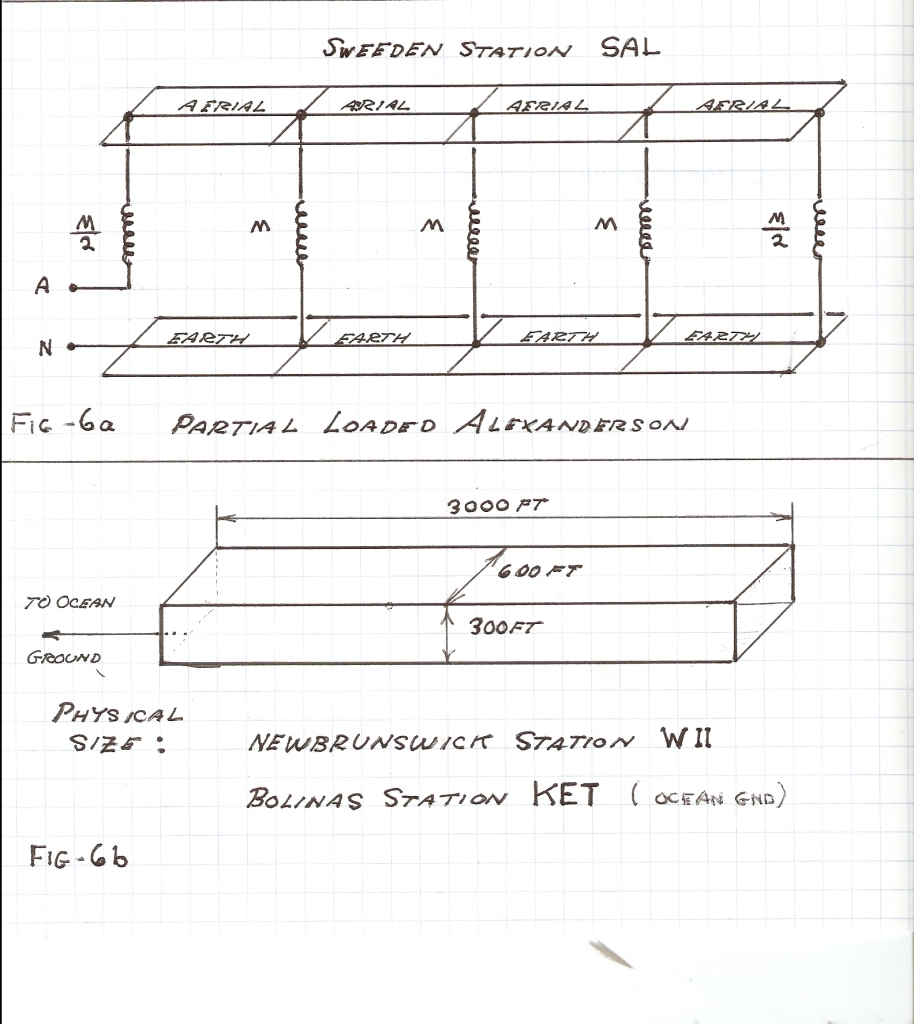 SWEEDEN STATION SAL
AERIAL ARIAL AERIAL AERIAL
M/2 M M M M/2
A
N
EARTH EARTH EARTH EARTH
FIG-6a PARTIAL LOADED ALEXANDERSON
3000 FT
600 FT
TO OCEAN
GROUND
300 FT
PHYSICAL
SIZE: NEWBRUNSWICK STATION WII
BOLINAS STATION KET (OCEAN GND)
FIG-6b